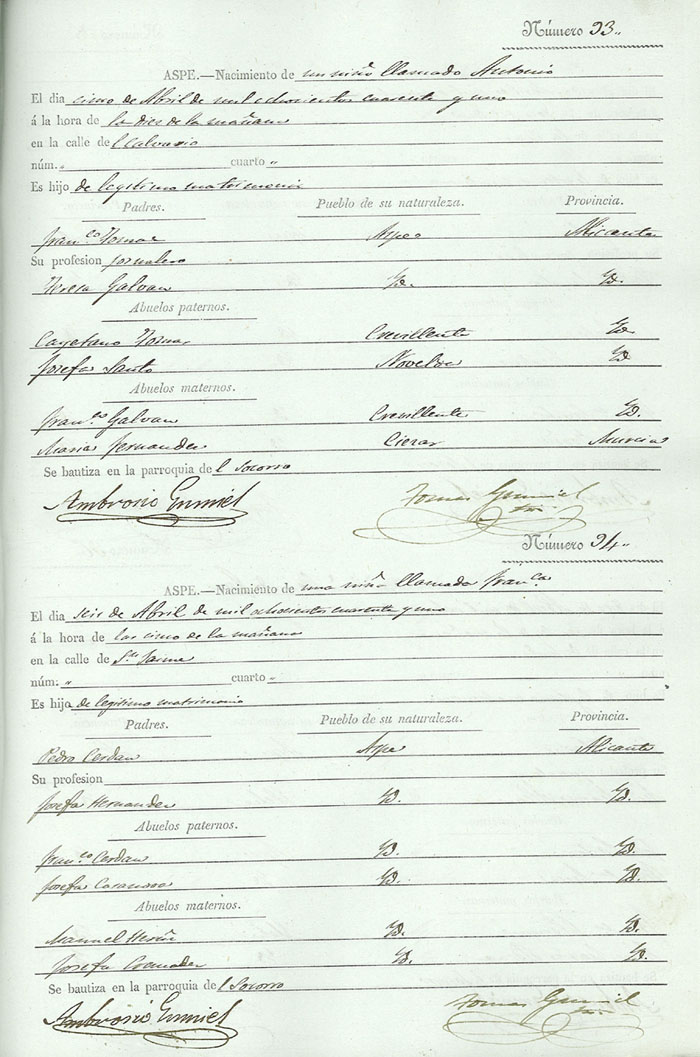 Número 93.
ASPE.—Nacimiento de un niño llamado Antonio
El dia cinco de Abril de mil ochocientos cuarenta y uno
á la hora de la diez de la mañana
en la calle del Calvario
núm. " cuarto "
Es hijo de legitimo matrimonio
Padres. Pueblo de su naturaleza. Provincia.
Fran.co Tomas Aspe Alicante
Su profesion Jornalero
Teresa Galvan Yd. Yd.
Abuelos paternos.
Cayetano Tomas Crevillente Yd
Josefa Santo Novelda Yd
Abuelos maternos.
Fran.co Galvan Crevillente Yd.
Maria Fernandez Murcia
Se bautiza en la parroquia del Socorro
Ambrosio Gumiel Tomas Gumiel
Número 94.
ASPE.—Nacimiento de una niña llamada Fran.ca
El dia seis de Abril de mil ochocientos cuarenta y uno
á la hora de las cinco de la mañana
en la calle de S.n Jaime
núm. " cuarto "
Es hija de legitimo matrimonio
Padres. Pueblo de su naturaleza. Provincia.
Pedro Cerdan Aspe Alicante
Su profesion
Josefa Hernandez Yd. Yd.
Abuelos paternos.
Fran.co Cerdan Yd. Yd.
Josefa Casanova Yd. Yd.
Abuelos maternos.
Manuel Yd. Yd.
Josefa Yd. Yd.
Se bautiza en la parroquia del Socorro
Ambrosio Gumiel Tomas Gumiel